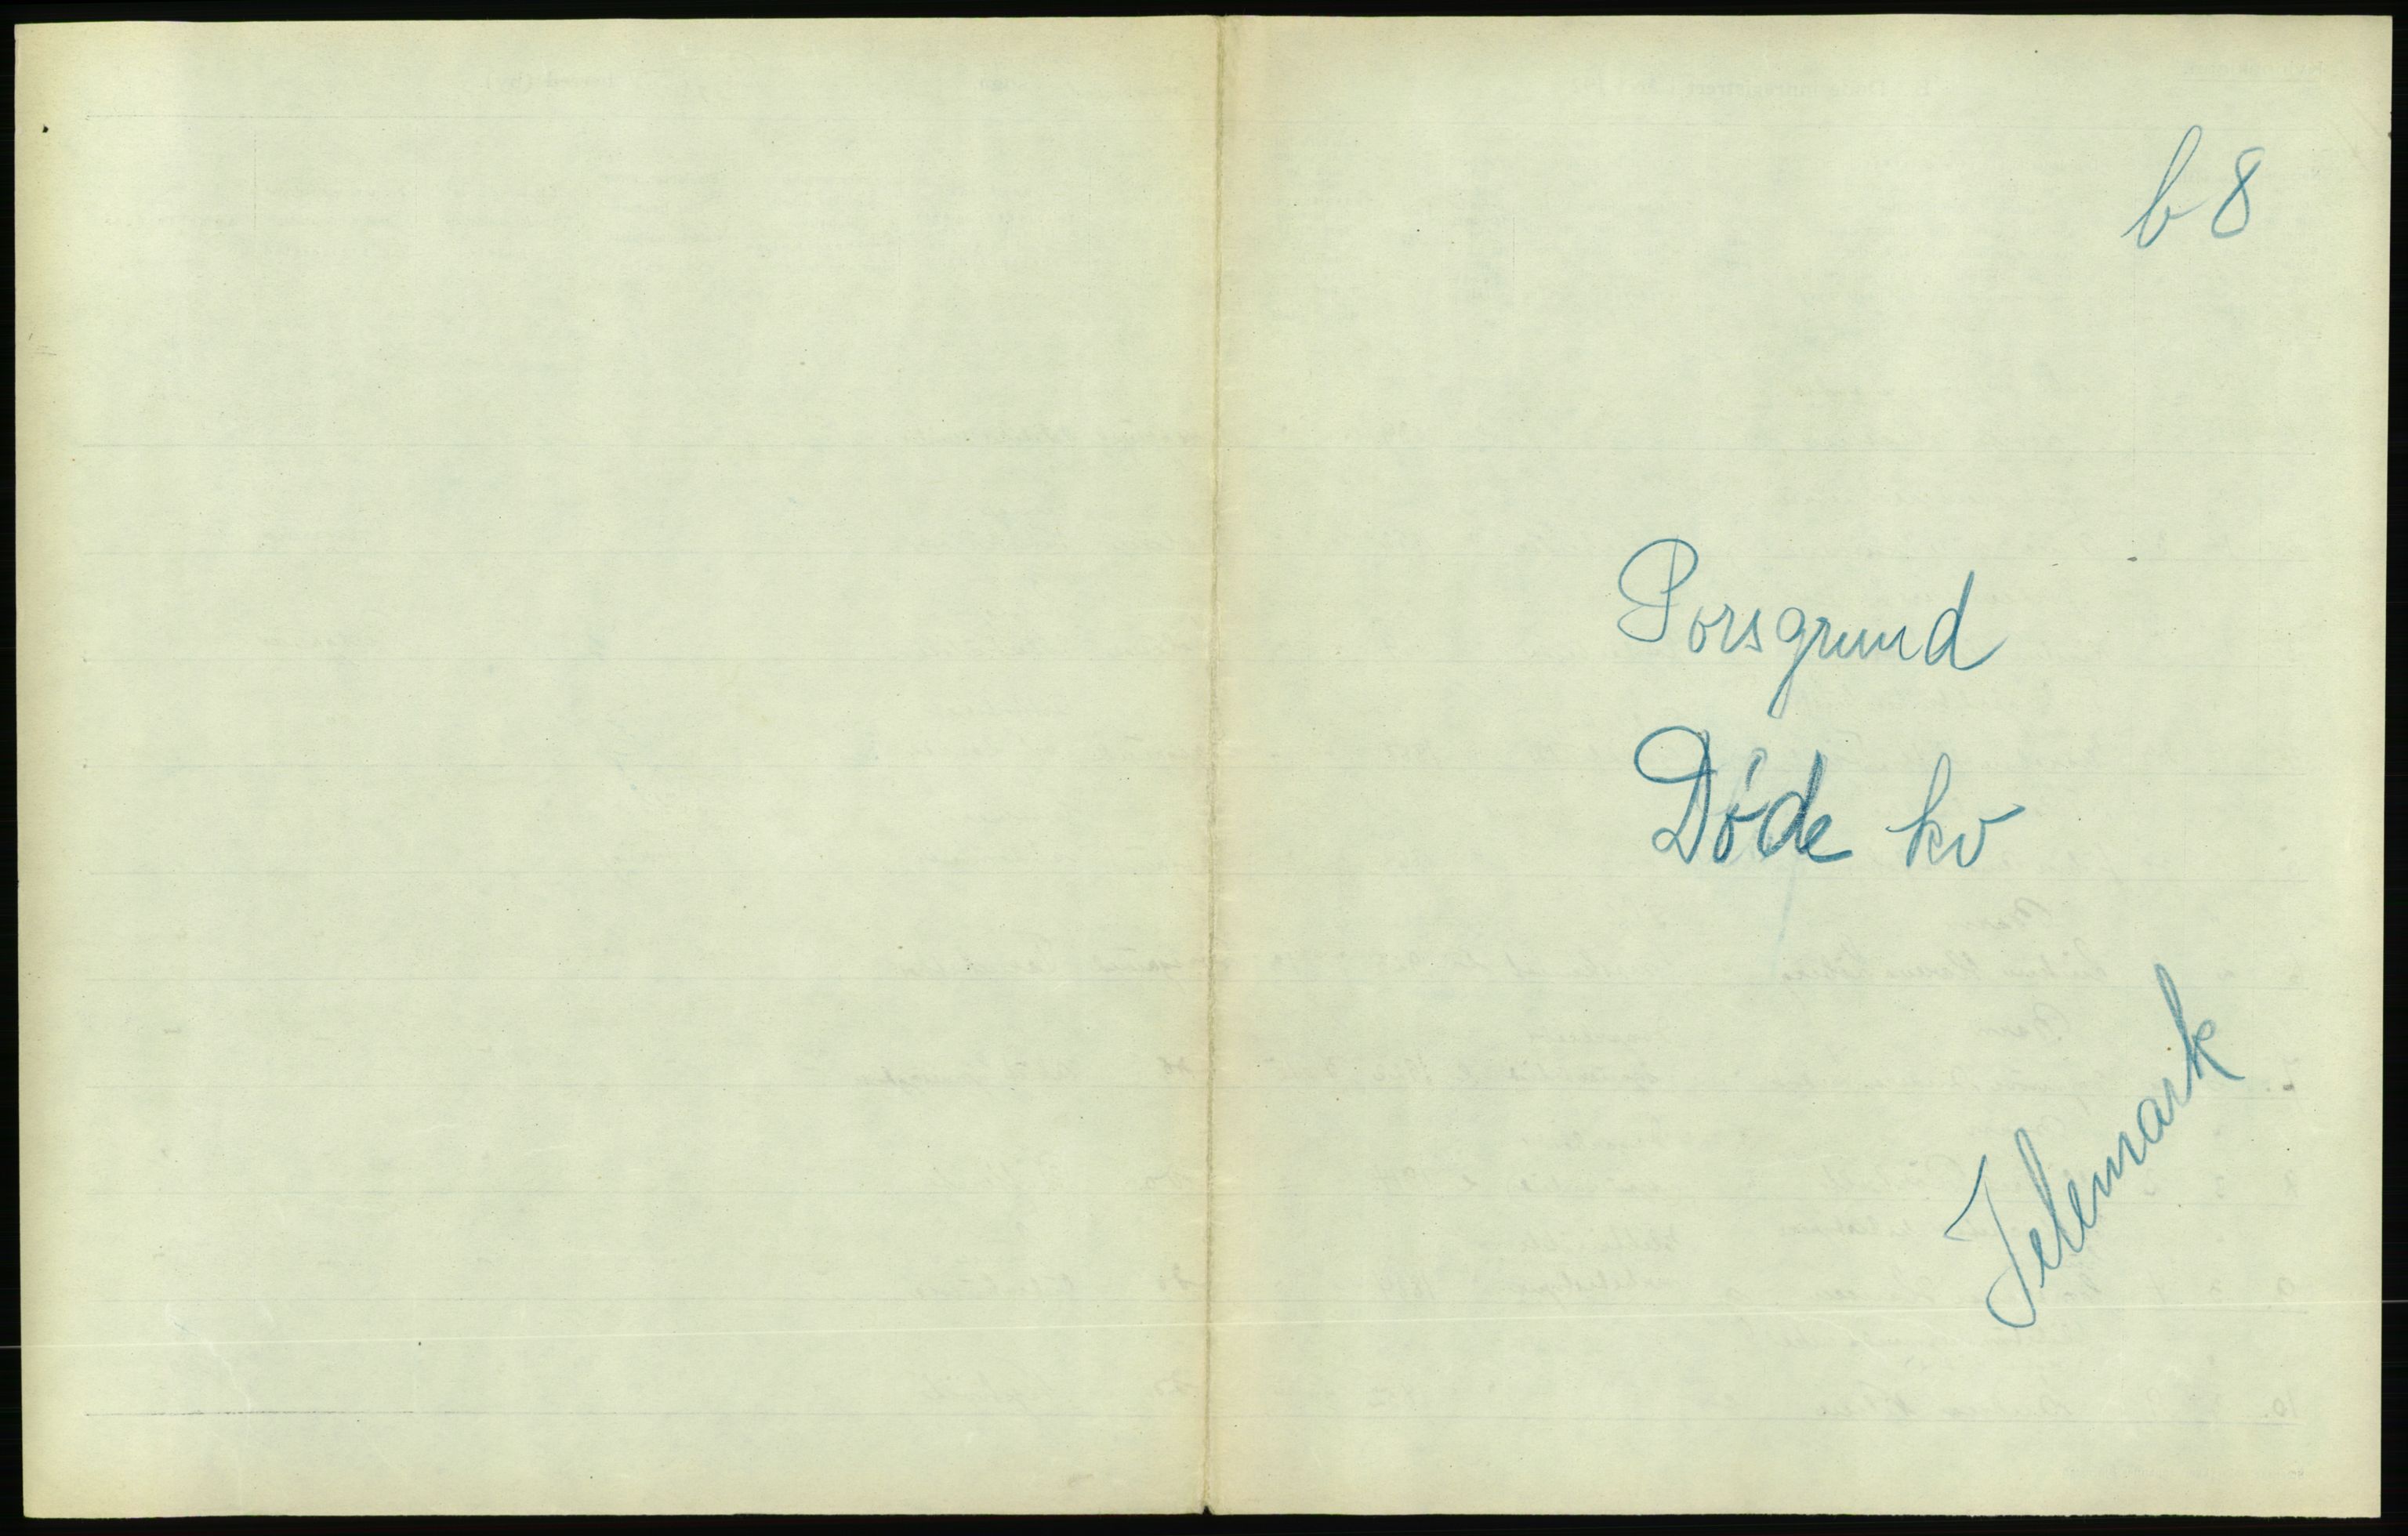 b 8
Porsgrund
Døde kv
Telemark